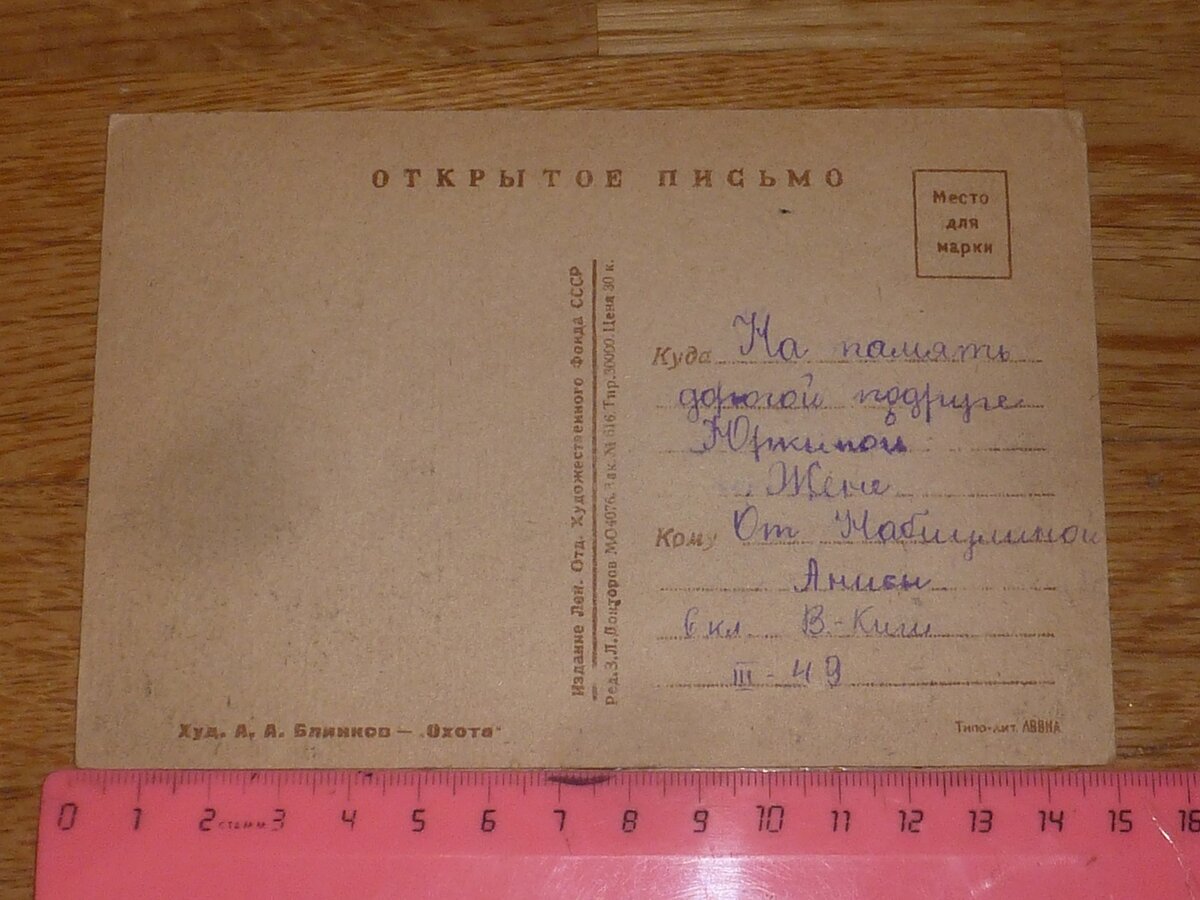 ОТКРЫТОЕ ПИСЬМО
Место
для
марки
Издание Лен. Отд. Художественного Фонда СССР
Ред. З. Л. Донторов МО4076. Зак. № 616. Тир. 30000. Цена 30 к.
Куда На память
дорогой подруге
Юркиной
Жене
Кому От Набиулиной
Анисы
6 кл. В.-Киги
III - 49
Худ. А. А. Блинков — „Охота"
Типо-лит. ЛВВИА
0 1 2 3 4 5 6 7 8 9 10 11 12 13 14 15 16